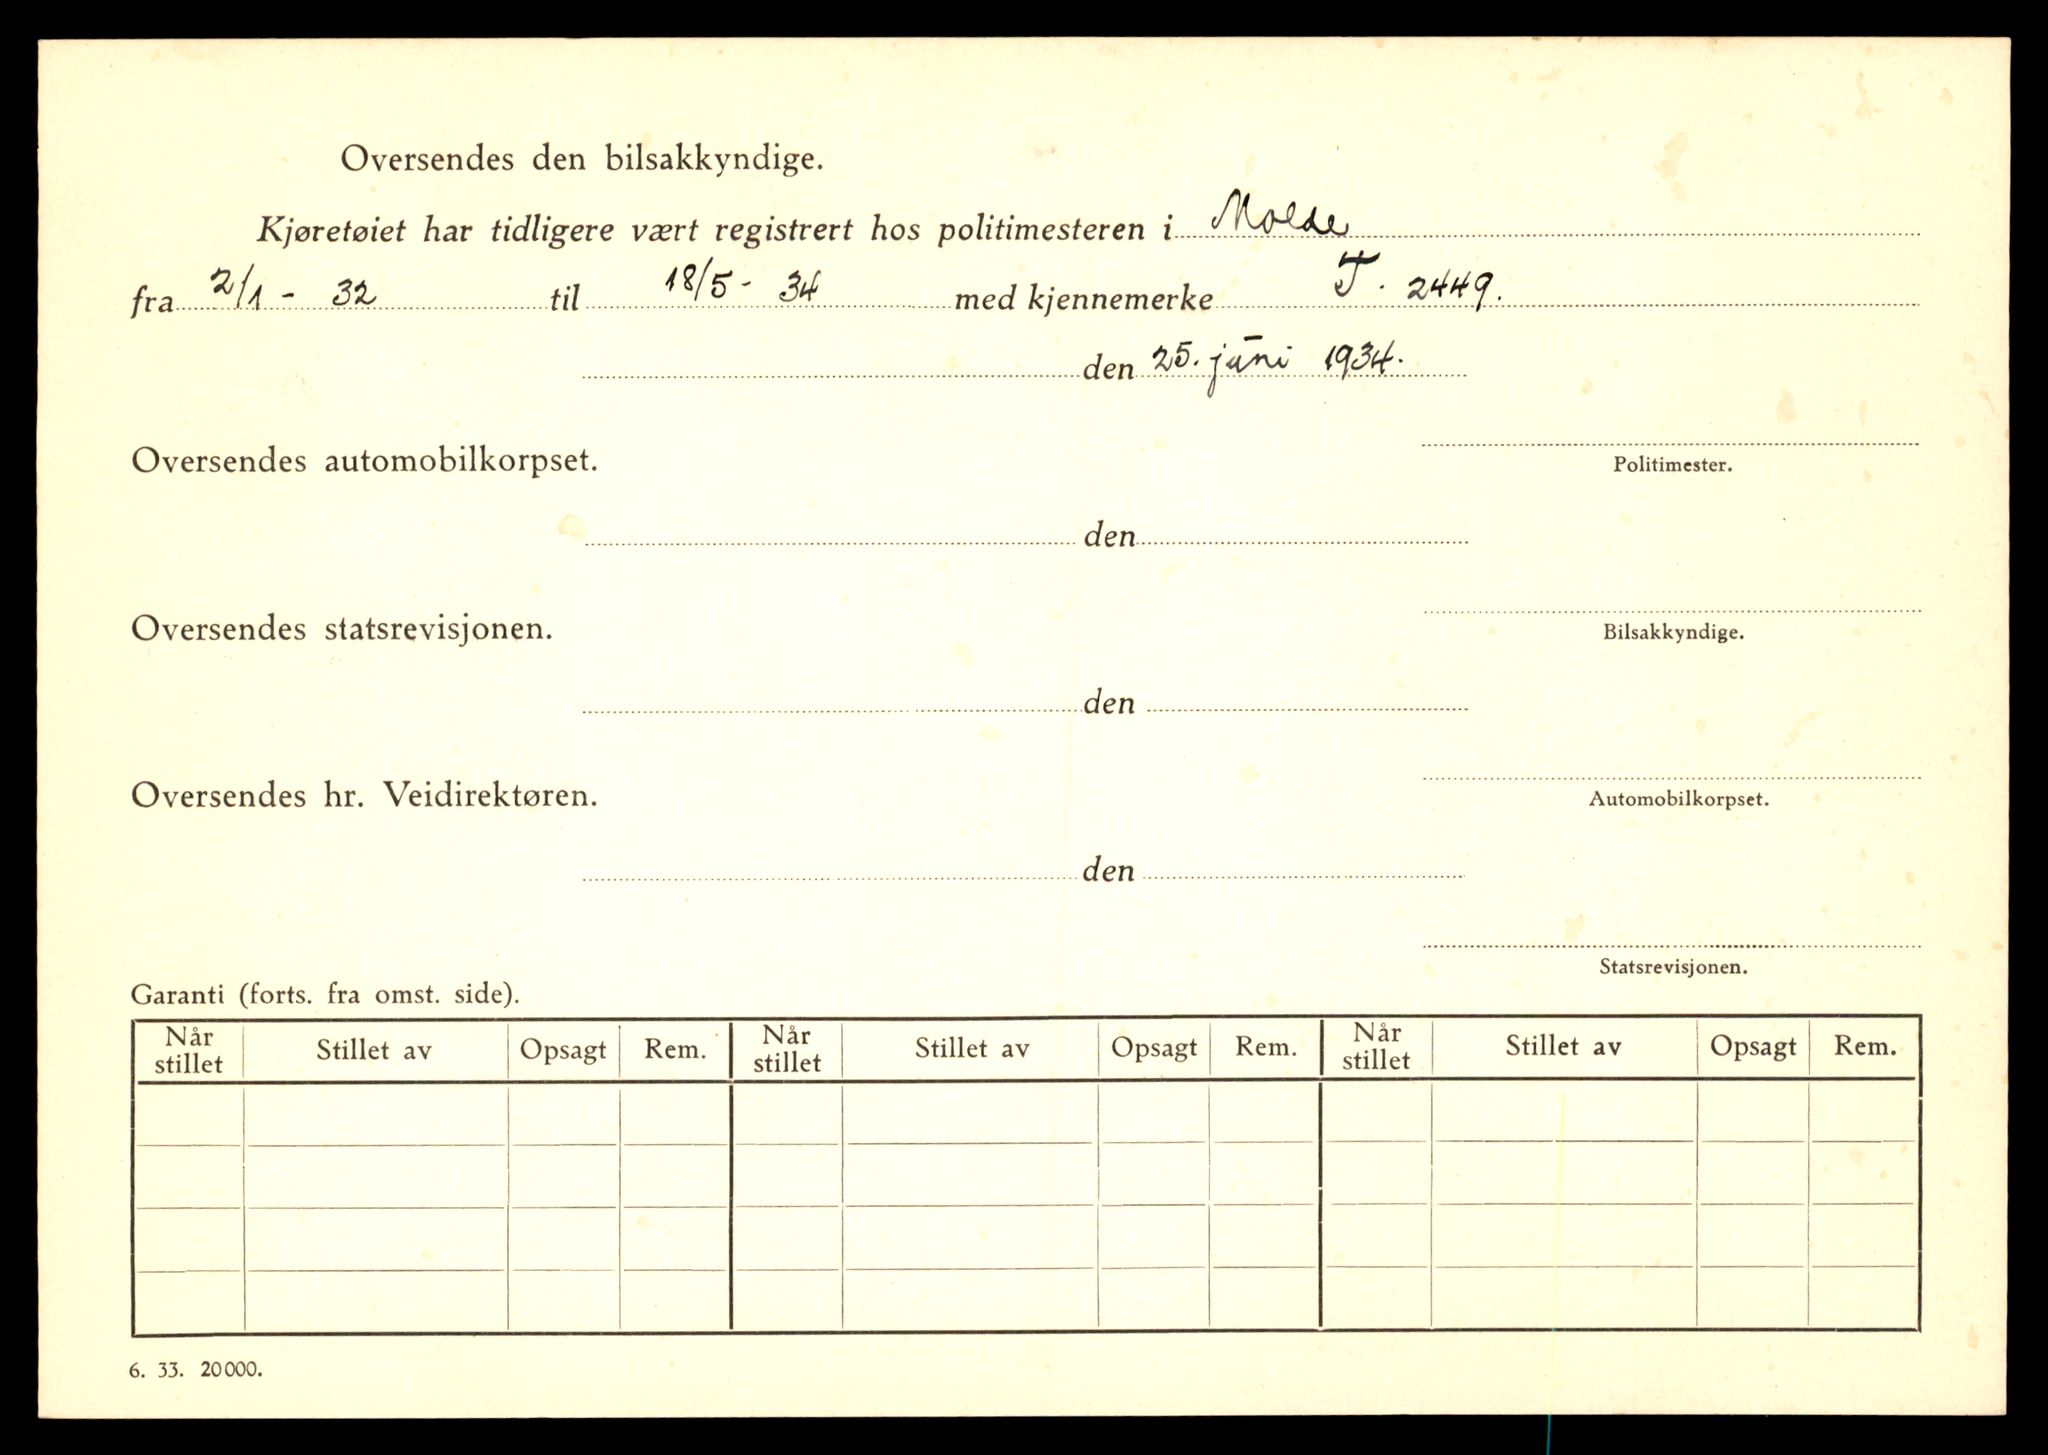 Oversendes den bilsakkyndige.
Kjøretøiet har tidligere vært registrert hos politimesteren i Molde
fra 2/1 - 32 til 18/5 - 34 med kjennemerke T. 2449.
den 25. juni 1934.
Oversendes automobilkorpset.
Politimester.
den
Oversendes statsrevisjonen.
Bilsakkyndige.
den
Oversendes hr. Veidirektøren.
Automobilkorpset.
den
Statsrevisjonen.
Garanti (forts. fra omst. side).
Når stillet Stillet av Opsagt Rem. Når stillet Stillet av Opsagt Rem. Når stillet Stillet av Opsagt Rem.
6. 33. 20000.